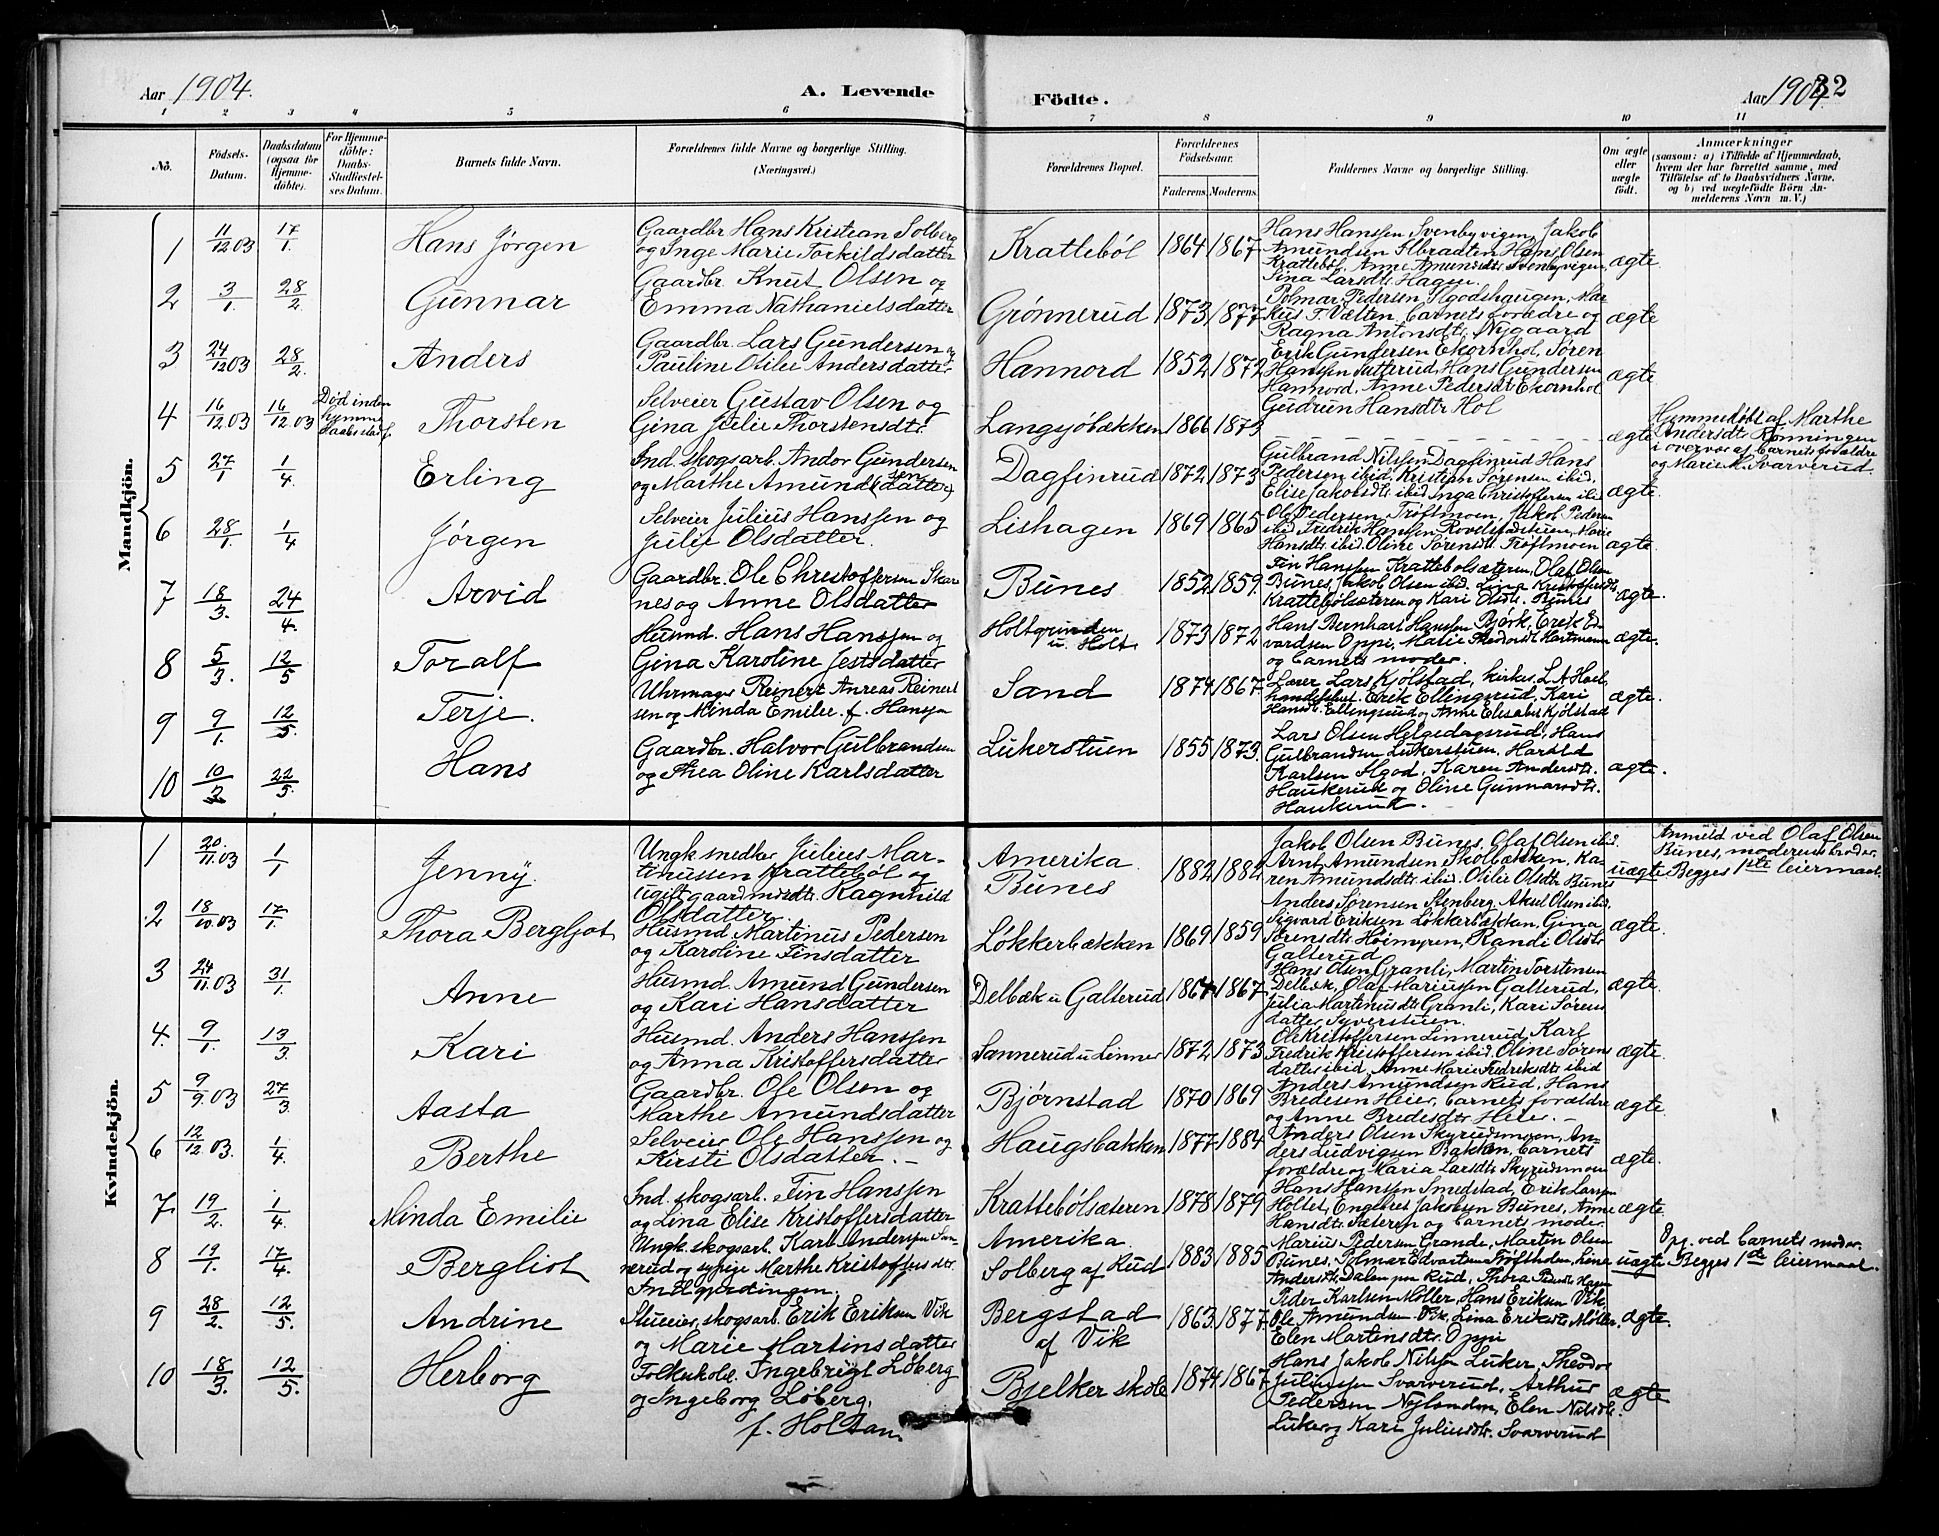 Aar 1904. A. Levende Födte. Aar 1904. 32
1 2 3 4 5 6 7 8 9 10 11
No. Födsels-Datum. Daabsdatum (ogsaa for Hjemme-döbte). For Hjemme-döbte: Daabs-Stadfæstel-ses Datum. Barnets fulde Navn. Forældrenes fulde Navne og borgerlige Stilling. (Næringsvei.) Forældrenes Bopæl. Forældrenes Födselsaar. Faderens. Moderens. Faddernes Navne og borgerlige Stilling. Om ægte eller uægte födt. Anmærkninger
(saasom: a) i Tilfælde af Hjemmedaab, hvem der har forrettet samme, med Tilföielse af to Daabsvidners Navne, og b) ved uægtefödte Börn An-melderens Navn m. V.)
Mandkjön.
1 11/12 03 17/1. Hans Jørgen Gaardbr Hans Kristian Solberg
og Inge Marie Torkildsdatter Krattebøl 1864 1867 Hans Hanssen Svenbyvigen, Jakob
Amundsen Ilbraaten, Hans Olsen
Krattebøl, Anne Amundsdtr Svenbyvigen,
Tina Larsdtr Hagen. ægte
2 3/1. 28/2 Gunnar Gaardbr. Knut Olsen og
Emma Nathanielsdatter Grønnerud 1873 1877 Polmar Pedersen Algodshaugen, Mar-
kus T. Vælten, barnets forældre og
Ragna Antonsdtr. Nygaard ægte
3 24/12 03 28/2. Anders Gaardbr. Lars Gundersen og
Pauline Otilie Andersdatter Hannord 1852 1872 Erik Gundersen Ekornhol, Søren
Hanssen Sætterud, Hans Gundersen
Hannord, Anne Pedersdtr Ekornhol
Gudrun Hansdtr Hol ægte
4 16/12 03 16/12 03 Død inden
hjemme
daabs stadf. Thorsten Selveier Gustav Olsen og
Gina Julie Thorstensdtr. Langsjøbækken 1866 1873 ægte Hjemmedøbt af Marthe
Andersdtr Rønningen
i overvær af barnets forældre
og Marie K. Svarverud.
5 27/1 1/4 Erling Ind. skogsarb. Andor Gundersen
og Marthe Amunds(sen)datter Dagfinrud 1872 1873 Gulbrand Nilssen Dagfinrud, Hans
Pedersen ibid, Kristian Sørensen ibid,
Elise Jakobsdtr ibid Inga Christoffersen ibid ægte.
6 28/1. 1/4 Jørgen Selveier Julius Hanssen og
Julie Olsdatter. Lishagen 1869 1865 Ole Pedersen, Trøftmoen, Jakob Pedersen
ibid, Fredrik Hansen Rovelstadstuen, Marie
Hansdtr ibid. Oline Sørensdtr. Trøftmoen ægte.
7 18/3. 24/4. Arvid Gaardbr. Ole Christoffersen Skar
nes og Anne Olsdatter Bunes 1852 1859. Fin Hanssen Krattebølsæteren, Olaf Olsen
Bunes, Jakob Olsen ibid. Lina Kristoffersdtr.
Krattebølsæteren og Kari Olsdtr. Bunes ægte.
8 5/3. 12/5 Toralf Husmd. Hans Hanssen og
Gina Karoline Jensdatter Holtgrinden
u. Holt 1873 1872 Hans Bernhart Hanssen Bjørk, Erik Ed-
vardsen Oppi, Marie Theodorsdtr Hartmann
og barnets moder. ægte.
9 9/1. 12/5. Terje. Uhrmager Reinert Anreas Reinert
sen og Minda Emilie f. Hanssen Sand 1874 1867. Lærer Lars Kjølstad, kirkes. L A Hoel,
handelsbet. Erik Ellingsrud, Kari
Hansdtr. Ellingsrud og Anne Elisabet Kjølstad ægte.
10 10/3 22/5. Hans Gaardbr. Halvor Gulbrandsen
og Thea Oline Karlsdatter Lukerstuen 1855 1873. Lars Olsen Helgedagsrud, Hans
Gulbrandsen Lukerstuen, Harald
Karlsen Algod, Karen Andersdtr.
Haukerud og Oline Gunnarsdtr.
Haukerud. ægte.
Kvindekjön.
1 20/11.03 1/1 Jenny. Ungk. snedker Julius Mar-
tinussen Krattebøl og
ugift gaardmdsdtr. Ragnhild
Olsdatter. Amerika
Bunes 1882 1882 Jakob Olsen Bunes, Olaf Olsen ibid.
Arnt Amundsen Skolbækken, Ka-
ren Amundsdtr ibid. Otilie Olsdtr Bunes uægte Anmeld ved Olaf Olsen
Bunes, moderens broder.
Begges 1ste leiermaal.
2 18/10.03 17/1. Thora Bergljot Husmd Martinus Pedersen
og Karoline Finsdatter Løkkerbækken 1869 1859 Anders Sørensen Stenberg, Aksel Olsen ibid,
Sigvard Eriksen Løkkerbækken, Gina
Sørensdtr Høimyren, Randi Olsdtr
Galterud ægte.
3 24/11.03 31/1. Anne Husmd. Amund Gundersen
og Kari Hansdatter Delbæk u Galterud 1864 1867 Hans Olsen Granli, Martin Torstensen
Delbæk, Olaf Mariussen Galterud,
Julia Martinusdtr Granli, Kari Sørens
datter Syverstuen. ægte.
4. 9/1. 13/3 Kari Husmd. Anders Hanssen
og Anna Kristoffersdatter Sannerud u Linner 1872 1873 Ole Kristoffersen Linnerud, Karl
Fredrik Kristoffersen ibid. Oline Sørens
datter ibid, Anne Marie Fredriksdtr ibid ægte.
5 9/9.03 27/3 Aasta Gaardbr. Ole Olsen og
Marthe Amundsdatter Bjørnstad 1870 1869 Anders Amundsen Rud, Hans
Bredesen Heier, barnets forældre
og Anne Bredesdtr Heier. ægte
6 12/12.03. 1/4. Berthe Selveier Ole Hanssen og
Kirsti Olsdatter. Haugsbakken 1877 1884 Anders Olsen Skyrudsmoen, An-
ders Ludvigsen Bakken, barnets
forældre og Maria Larsdtr Skyrudsmoen ægte.
7. 19/2. 1/4. Minda Emilie Ind. skogsarb. Fin Hanssen
og Lina Elise Kristoffersdatter Krattebølsæteren 1878 1879 Hans Hanssen Smedstad, Erik Larssen
Holtet, Engebret Jakobsen Bunes, Anne
Hansdtr. Sæteren og barnets moder. ægte.
8 19/1. 17/4. Bergliot Ungk. skogsarb. Karl Anderssen San-
nerud og sypige Marthe Kristoffersdtr.
Amerika
Solberg af Rud 1883 1885 Marius Pedersen Grande, Martin Olsen
Bunes, Polmar Edvartsen uægte Opg. ved barnets moder.
Begges 1ste leiermaal.
9 28/2. 12/5. Andrine skogsarb. Erik Eriksen Vik
og Marie Martinsdatter Bergstad
af Vik 1863 1877. Peder Karlsen Møller, Hans Eriksen Vik,
Ole Amundsen Vik, Lina Eriksdtr Møller,
Elen Martinsdtr. Oppi ægte.
10 18/3. 12/5. Herborg Folkeskol. Ingebrigt Løberg
og Ingeborg Løberg,
f. Holtan. Bjelker skole 1874 1867 Hans Jakob Nilssen Luker, Theodor
Juliussen Svarverud, Arthur
Pedersen Nylænden, Elen Nilsdtr.
Luker og Kari Juliusdtr. Svarverud ægte